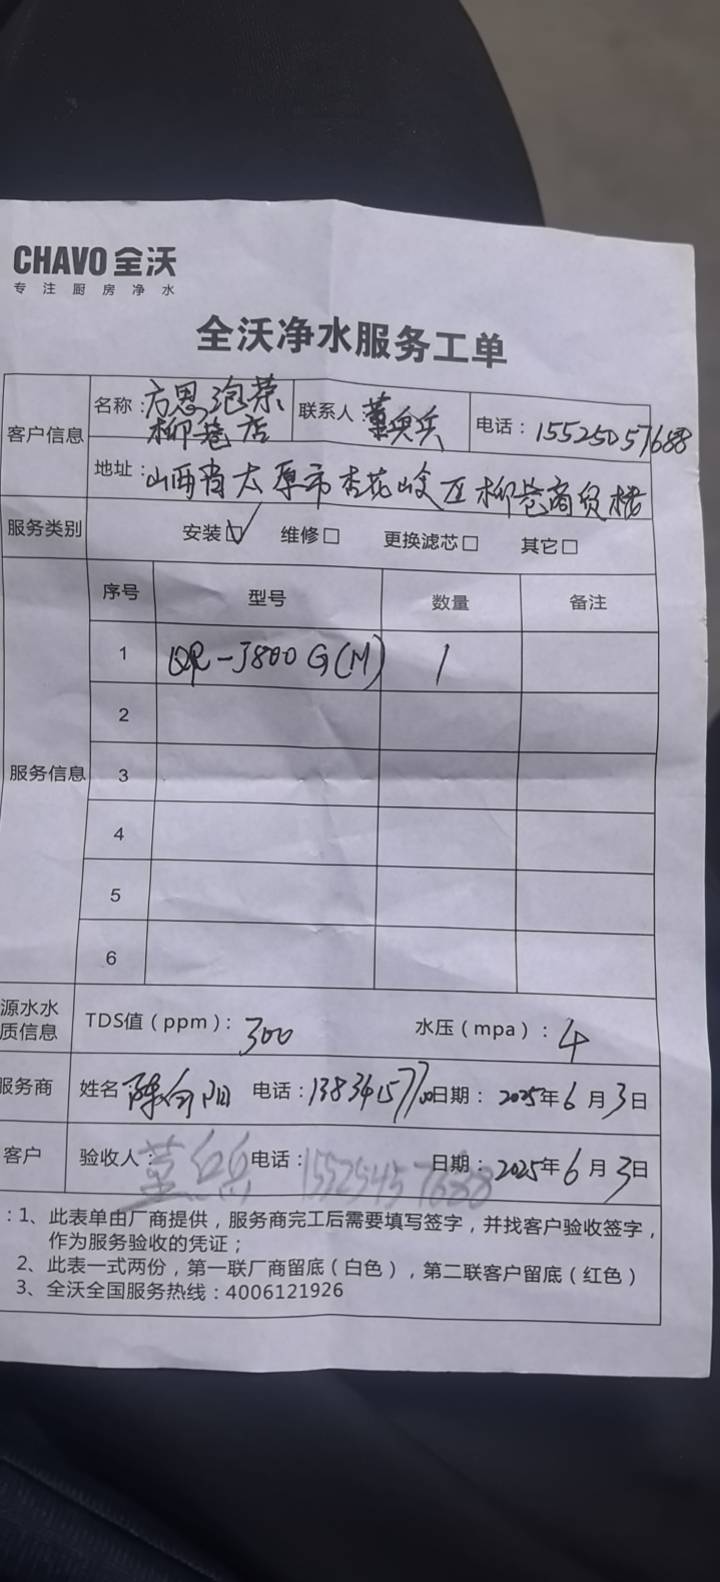 CHAVO 全沃
专注厨房净水
全沃净水服务工单
客户信息
名称：方恩泡菜
柳巷店
联系人：董
电话：15525057688
地址：山西省太原市杏花岭区柳巷商贸楼
服务类别 安装☑ 维修□ 更换滤芯□ 其它□
服务信息
序号 型号 数量 备注
1 QR-J800G(M) 1
2
3
4
5
6
源水水质信息 TDS值（ppm）：300 水压（mpa）：4
服务商 姓名 陈向阳 电话： 日期：2025年6月3日
客户 验收人：董 电话： 日期：2025年6月3日
：1、此表单由厂商提供，服务商完工后需要填写签字，并找客户验收签字，
作为服务验收的凭证；
2、此表一式两份，第一联厂商留底（白色），第二联客户留底（红色）
3、全沃全国服务热线：4006121926